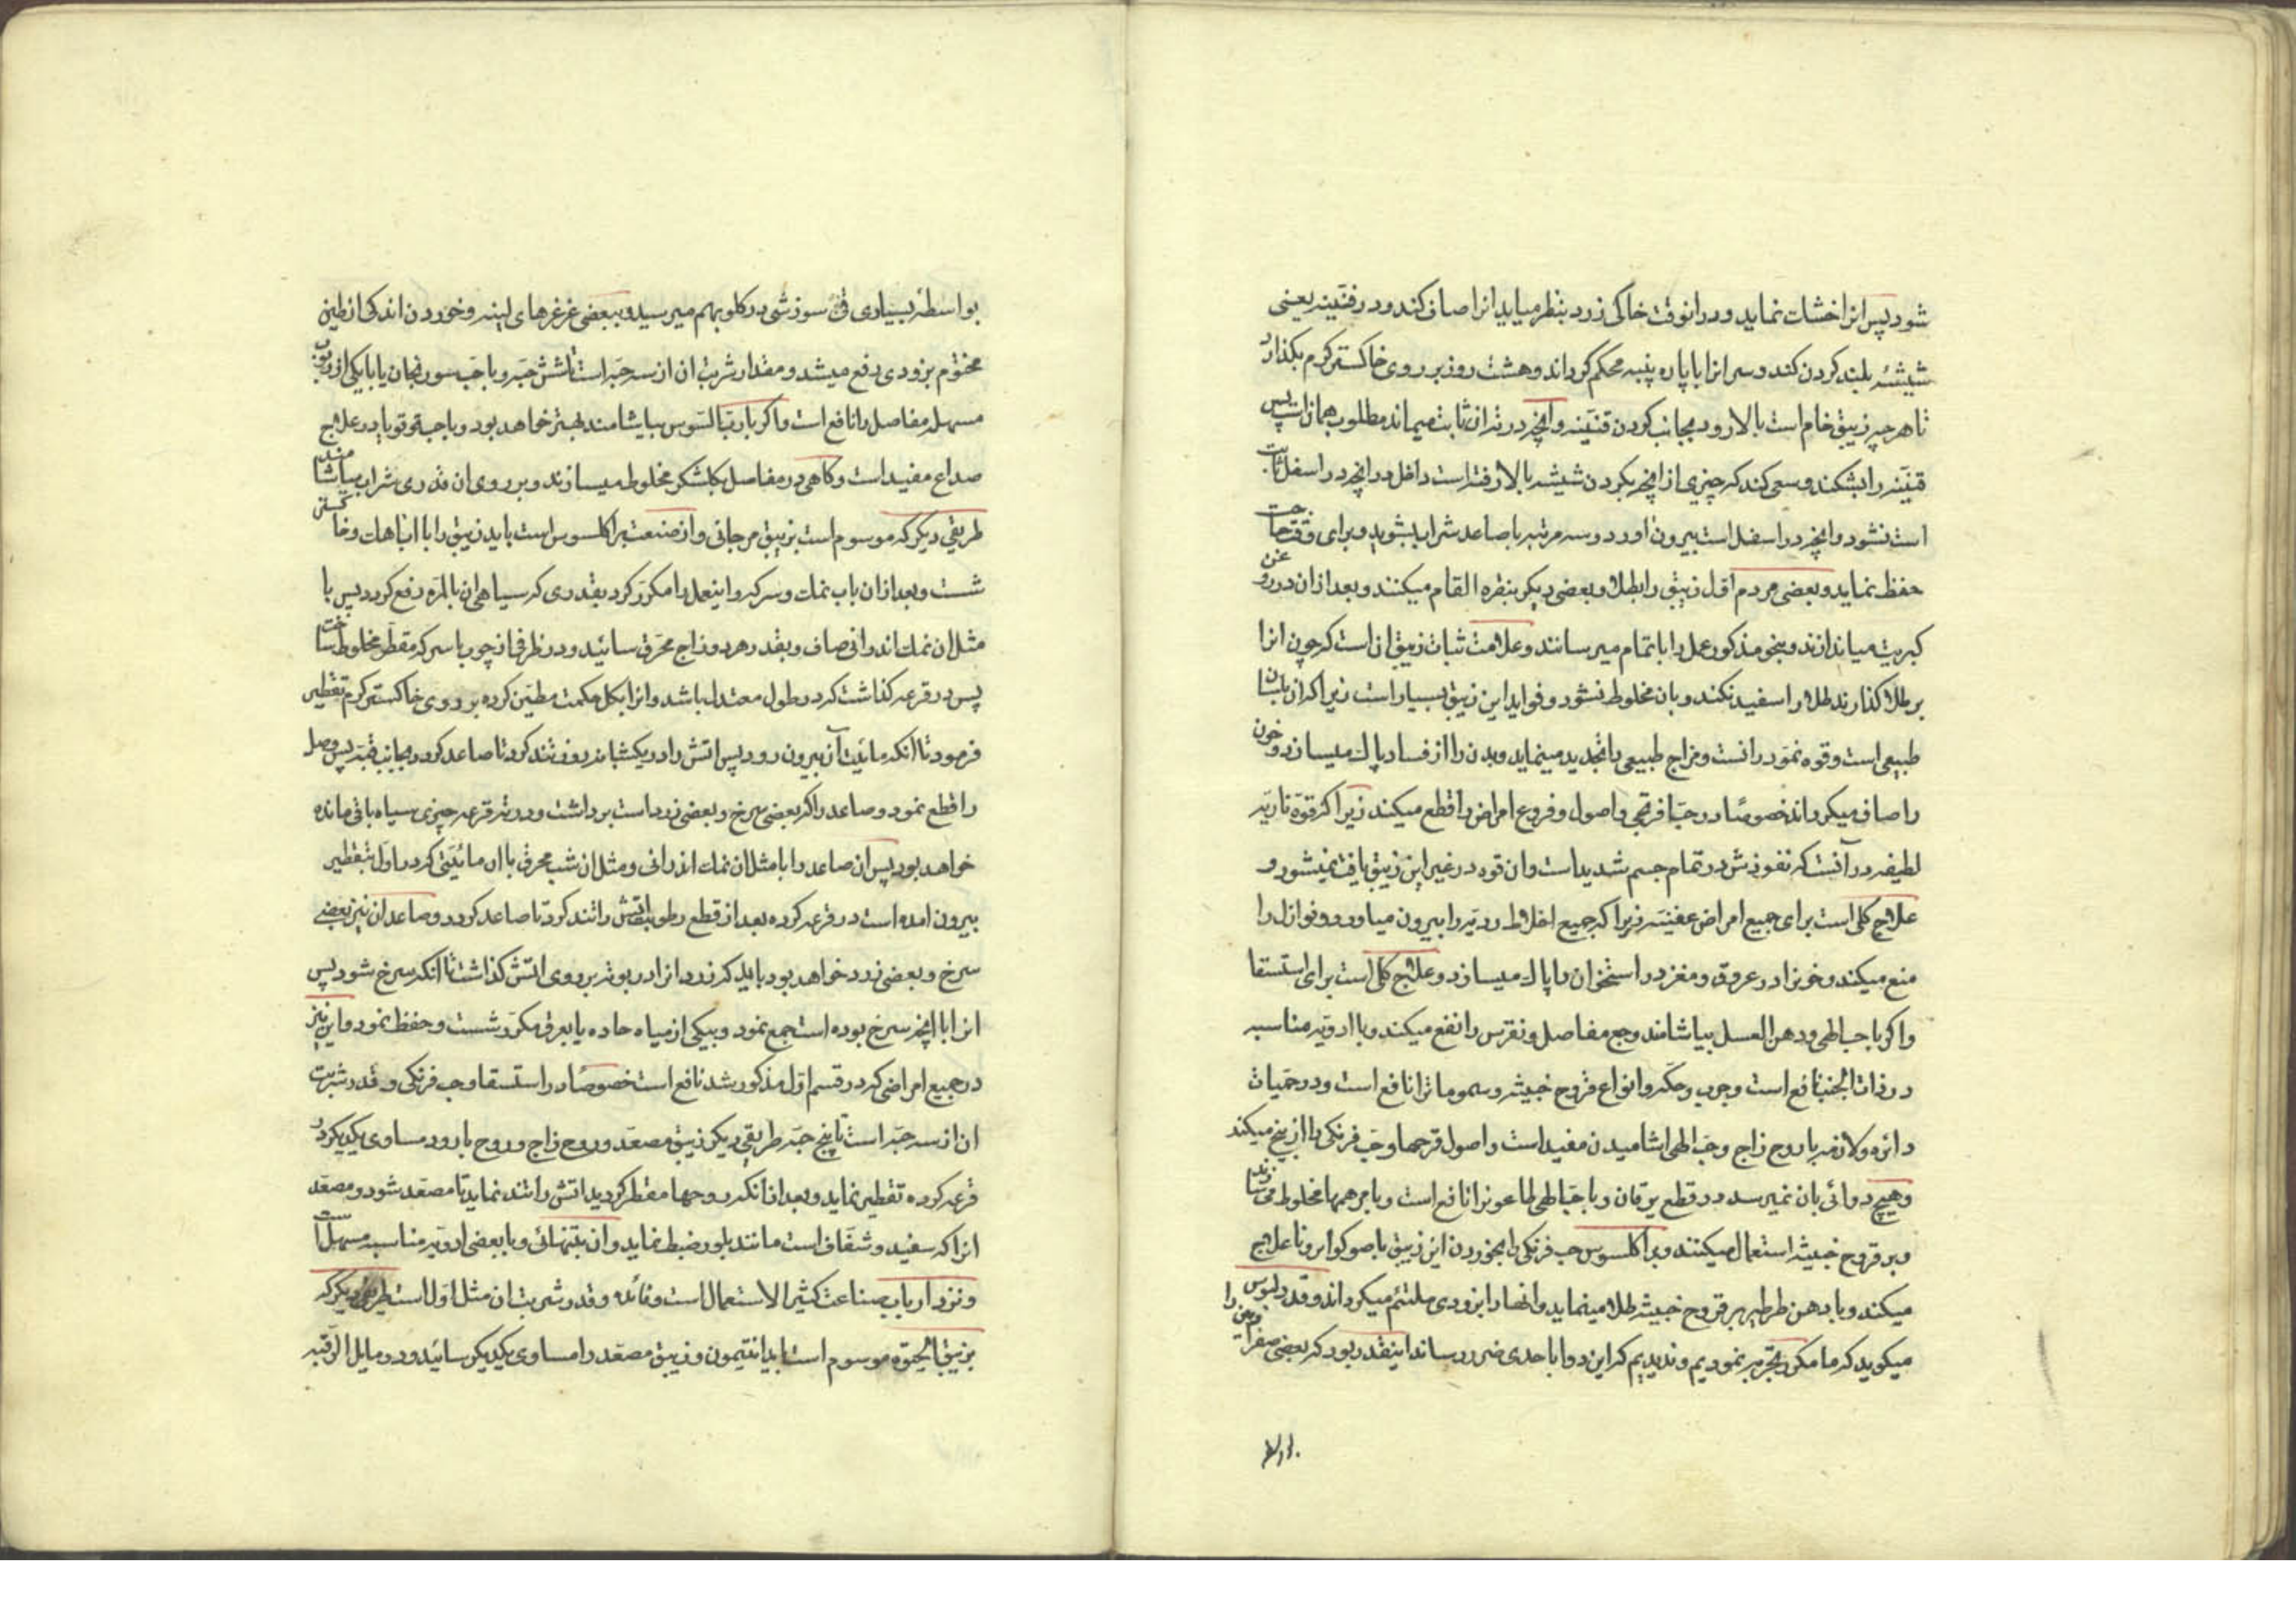 شود پس انرا خشات نماید و در انوقت خاکی زرد بنظر میاید انرا صاف کند و در قنینه یعنی
شیشهٔ بلند کردن کند و سر انرا با پاره پنبه محکم کرداند و هشت روز بر روی خاکستر کرم بکذارد
تا هر چه زیبق خام است بالا رود بجانب کردن قنینه و آنچه در ته ان ثابت میماند مطلوب همانست پس
قنینه را بشکند و سعی کند که چیزی از انچه بکردن شیشه بالا رفته است داخل در انچه در اسفل ثابت
است نشود و انچه در اسفل است بیرون اورد و سه مرتبه با صاعد شراب بشوید و برای وقت حاجت
حفظ نماید و بعضی مردم اول زیبق را بطلا و بعضی دیکر بنقره القام میکنند و بعد ازان در روغن
کبریت میاندازند و بنحو مذکور عمل را باتمام میرسانند و علامت ثبات زیبق انست که چون انرا
بر طلا کذارند طلا را سفید نکند و بان مخلوط نشود و فواید این زیبق بسیار است زیرا که ان بلسان
طبیعی است و قوه نمو در انست و مزاج طبیعی را تجدید مینماید و بدن را از فساد پاک میسازد و خون
را صاف میکرداند خصوصًا در حب افرنجی و اصول و فروع امراض را قطع میکند زیرا که قوة ناریه
لطیفه در آنست که نفوذش در تمام جسم شدید است و ان قوه در غیر این زیبق یافت نمیشود و
علاج کلی است برای جمیع امراض عفنیه زیرا که جمیع اخلاط ردیه را بیرون میاورد و نوازل را
منع میکند و خونرا در عروق و مغز در استخوان را پاک میسازد و علاج کلی است برای استسقا
و اکر با حب الهی و دهن العسل بیاشامند وجع مفاصل و نقرس را نفع میکند و با ادویه مناسبه
در ذات الجنب نافع است و جرب و حکه و انواع قروح خبیثه و سموماترا نافع است و در حمیات
دائره و لازمه با روح زاج و حب الهی اشامیدن مفید است و اصول قرحها و حب فرنکی را از بیخ میکند
و هیچ دوائی بان نمیرسد و در قطع یرقان و با حب الهی طاعونرا نافع است و با مرهمها مخلوط میسازند
و بر قروح خبیثه استعمال میکنند و براکلسوس حب فرنکی را بخوردن این زیبق با صوکو ابرونا علاج
میکند و با دهن طرطیر بر قروح خبیثه طلا مینماید و انها را بزودی ملتئم میکرداند و
میکوید که ما مکرر تجربه نمودیم و ندیدیم که این دوا باحدی ضرر رساند اینقدر بود که بعضی
بواسطهٔ بسیاری قی سوزشی در کلو بهم میرسید و ببعضی غرغرهای لینه و خوردن اندکی از طین
مختوم بزودی دفع میشد و مقدار شربت ان از سه حبه است تا شش حبه و با حب سورنجان یا با یکی از
مسهل مفاصل را نافع است و اکر با رب السوس بیاشامند بهتر خواهد بود و با حب قوقویا در علاج
صداع مفید است و کاهی در مفاصل بکلشکر مخلوط میسازند و بر روی ان قدری شراب بیاشامند
طریقی دیکر که موسوم است بزیبق مرجانی و از صنعت براکلسوس است باید زیبق را با اب اهک و خاکستر
شست و بعد ازان باب نمک و سرکه و اینعمل را مکرر کرد بقدری که سیاهی ان بالمره رفع کردد پس با
مثل ان نمک اندرانی صاف و بقدر هر دو زاج محرق سائید و در ظرفی از چوب با سرکه مقطر مخلوط ساخت
پس در قرعه کذاشت که در طول معتدل باشد و انرا بکل حکمت مطین کرده بر روی خاکستر کرم تقطیر
فرمود تا انکه مائیت آن بیرون رود پس اتش را در یکشبانه روز تند کرد تا صاعد کردد بجانب قبه پس وصل
را قطع نمود و صاعد را که بعضی سرخ و بعضی زرد است برداشت و در ته قرعه چیزی سیاه باقی مانده
خواهد بود پس ان صاعد را با مثل ان نمک اندرانی و مثل ان شب محرق با ان مائیتی که در اول بتقطیر
بیرون امده است در قرعه کرده بعد از قطع رطوبت اتش را تند کرد تا صاعد کردد و صاعد ان نیز بعضی
سرخ و بعضی زرد خواهد بود باید که زرد انرا در بوته بر روی اتش کذاشت تا انکه سرخ شود پس
انرا با انچه سرخ بوده است جمع نمود و بیکی از میاه حاده یا بعرق مکرر شست و حفظ نمود و این نیز
در جمیع امراضی که در قسم اول مذکور شد نافع است خصوصًا در استسقا و حب فرنکی و قدر شربت
ان از سه حبه است تا پنج حبه طریقی دیکر زیبق مصعد و روح زاج و روح بارود مساوی یکدیکر در
قرعه کرده تقطیر نماید و بعد از انکه روحها مقطر کردید اتش را تند نماید تا مصعد شود و مصعد
انرا که سفید و شفاف است مانند بلور ضبط نماید و ان بتنهائی و با بعضی ادویه مناسبه مسهل است
و نزد ارباب صناعت کثیر الاستعمال است و فائده و قدر شربت ان مثل اول است طریقی دیکر که
بزیبق الحیوة موسوم است باید انتیمون و زیبق مصعد را مساوی یکدیکر سائید و در مایل الرقبه